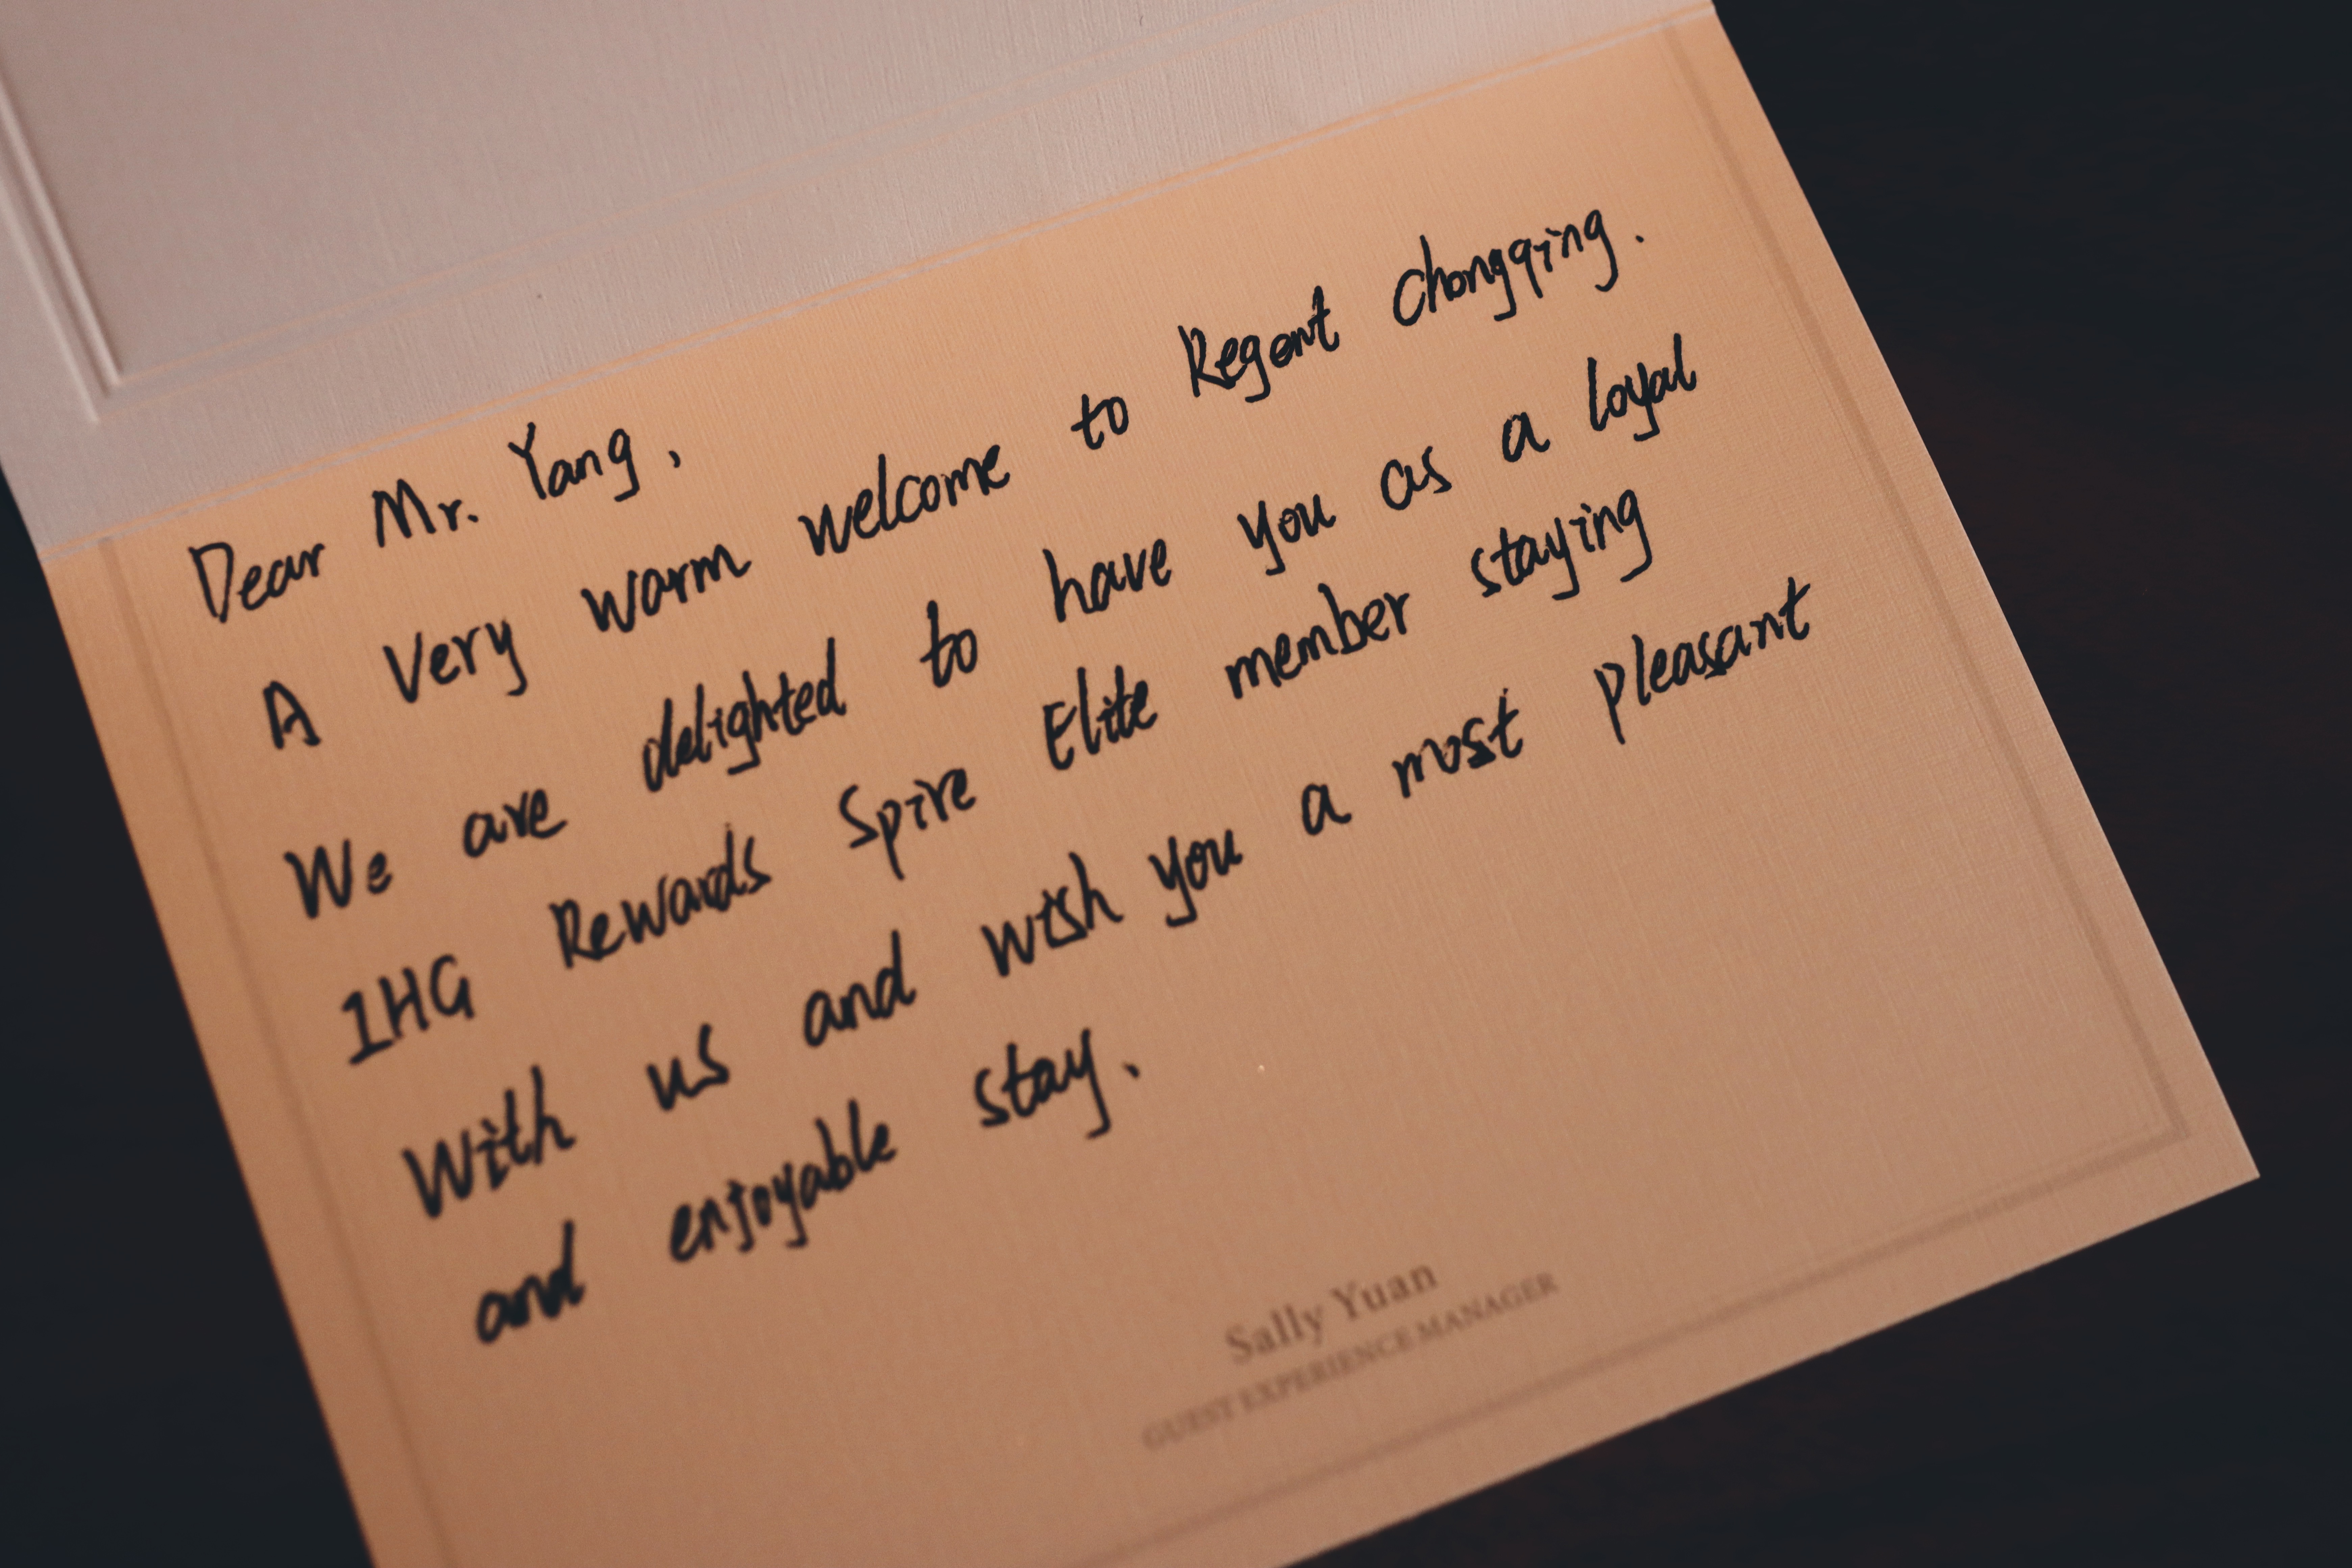 Dear Mr. Yang,
A Very warm welcome to Regent Chongqing.
We are delighted to have you as a loyal
IHG Rewards Spire Elite member staying
With us and wish you a most pleasant
and enjoyable stay.
Sally Yuan
GUEST EXPERIENCE MANAGER